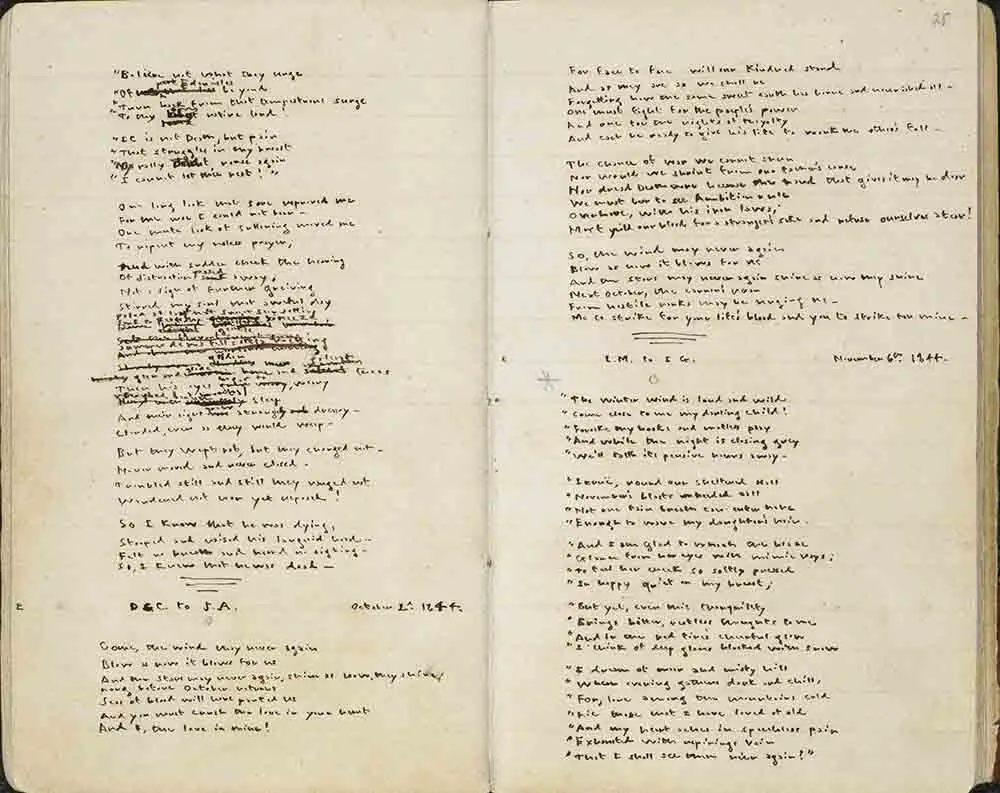 "Believe not what they urge
"Of Eden isles beyond
"Turn back from that tempestuous surge
"To thy native land!
"It is not Death, but pain
"That struggles in thy breast
"Nay rally rouse again
"I cannot let thee rest!"
One long look that sore reproved me
For the woe I could not bear -
One mute look of suffering moved me
To repent my useless prayer;
And with sudden check the heaving
Of distraction passed away;
Not a sign of further grieving
Stirred my soul that awful day
Then his eyes began to weary
sleep
And their light grew strangely dreary -
Clouded, even as they would weep -
But they wept not, but they changed not -
Never moved and never closed -
Troubled still and still they ranged not
Wandered not nor yet reposed!
So I knew that he was dying,
Stooped and raised his languid head -
Felt no breath and heard no sighing -
So, I knew that he was dead -
E
D.G.C. to J.A. October 2nd 1844.
Come, the wind may never again
Blow as now it blows for us
And the Stars may never again, shine as now they shine;
Long before October returns
Seas of blood will have parted us
And you must crush the love in your heart
And I, the love in mine!
25
For face to face will our Kindred stand
And as they are so we shall be
Forgetting how the same sweet earth has borne and nourished all -
One must fight for the people's power
And one for the rights of royalty
And each be ready to give his life to work the other's fall -
The chance of war we cannot shun
Nor would we shrink from our father's cause
Nor dread Death more because the hand that gives it may be dear
We must bear to see Ambition rule
Over love, with his iron laws;
Must yield our blood for a stranger's sake and refuse ourselves a tear!
So, the wind may never again
Blow as now it blows for us
And the stars may never again shine as now they shine
Next October, the cannon's roar
From hostile ranks may be urging us -
Me to strike for your life's blood and you to strike for mine -
E
E.M. to I.G. November 6th 1844.
"The winter wind is loud and wild
"Come close to me my darling child!
"Forsake thy books and mateless play
"And while the night is closing grey
"We'll talk its pensive hours away -
"Ierne, round our sheltered hall
"November's blasts unheeded call
"Not one faint breath can enter here
"Enough to wave my daughter's hair -
"And I am glad to watch the blaze
"Glance from her eyes with mimic rays;
"To feel her cheek so softly pressed
"In happy quiet on my breast;
"But yet, even this tranquillity
"Brings bitter, restless thoughts to me
"And in the red fire's cheerful glow
"I think of deep glens blocked with snow
"I dream of moor and misty hill
"Where evening gathers dark and chill,
"For, lone among the mountains cold
"Lie those that I have loved of old
"And my heart aches in speechless pain
"Exhausted with repinings vain
"That I shall see them ne'er again!"